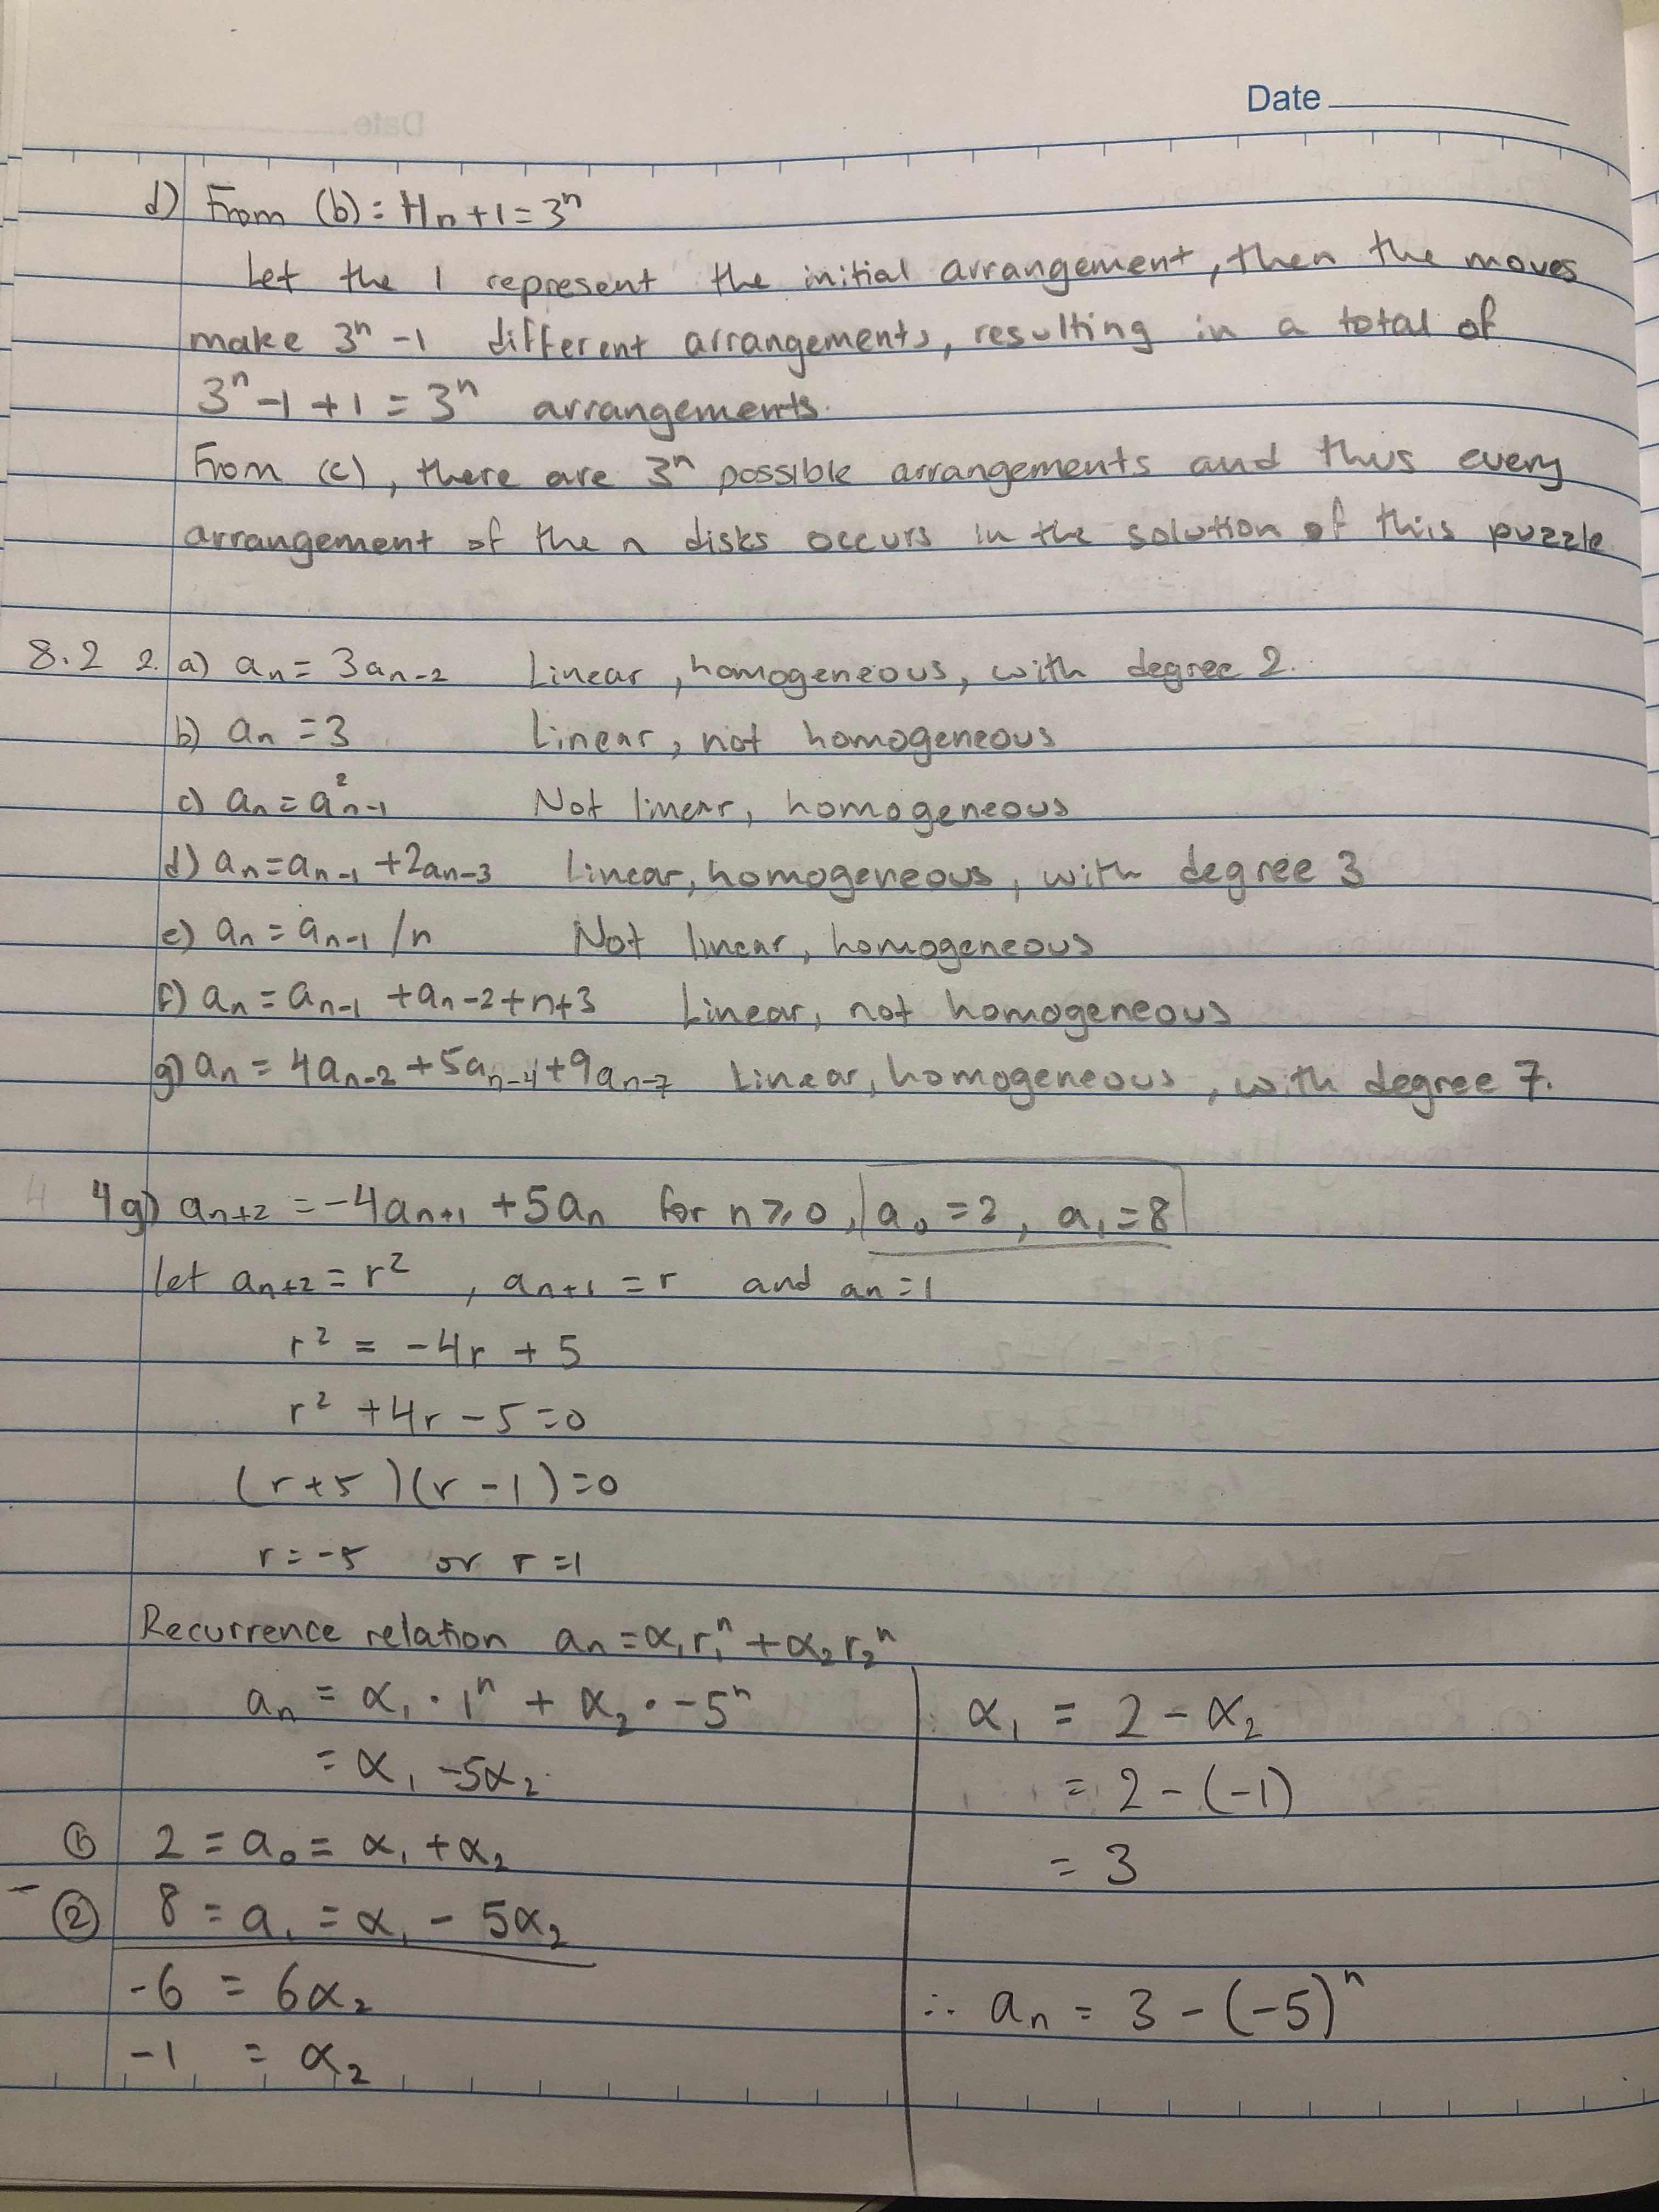 Date
d) From (b): Hn+1=3ⁿ
Let the 1 represent the initial arrangement, then the moves
make 3ⁿ-1 different arrangements, resulting in a total of
3ⁿ-1+1=3ⁿ arrangements.
From (c), there are 3ⁿ possible arrangements and thus every
arrangement of the n disks occurs in the solution of this puzzle
8.2 2. a) aₙ = 3aₙ₋₂ Linear, homogeneous, with degree 2.
b) aₙ = 3 Linear, not homogeneous
c) aₙ = a²ₙ₋₁ Not linear, homogeneous
d) aₙ=aₙ₋₁ +2aₙ₋₃ Linear, homogeneous, with degree 3
e) aₙ = aₙ₋₁ /n Not linear, homogeneous
f) aₙ = aₙ₋₁ +aₙ₋₂+n+3 Linear, not homogeneous
g) aₙ = 4aₙ₋₂+5aₙ₋₄+9aₙ₋₇ Linear, homogeneous, with degree 7.
4g) aₙ₊₂ = -4aₙ₊₁ +5aₙ for n⩾0, a₀=2, a₁=8
let aₙ₊₂ = r², aₙ₊₁ = r and aₙ=1
r² = -4r + 5
r² +4r -5=0
(r+5)(r-1)=0
r=-5 or r=1
Recurrence relation aₙ=α₁r₁ⁿ+α₂r₂ⁿ
aₙ = α₁·1ⁿ + α₂·-5ⁿ
= α₁ -5α₂
① 2 = a₀ = α₁ +α₂
- ② 8 = a₁ = α₁ - 5α₂
-6 = 6α₂
-1 = α₂
α₁ = 2 - α₂
= 2-(-1)
= 3
∴ aₙ = 3-(-5)ⁿ